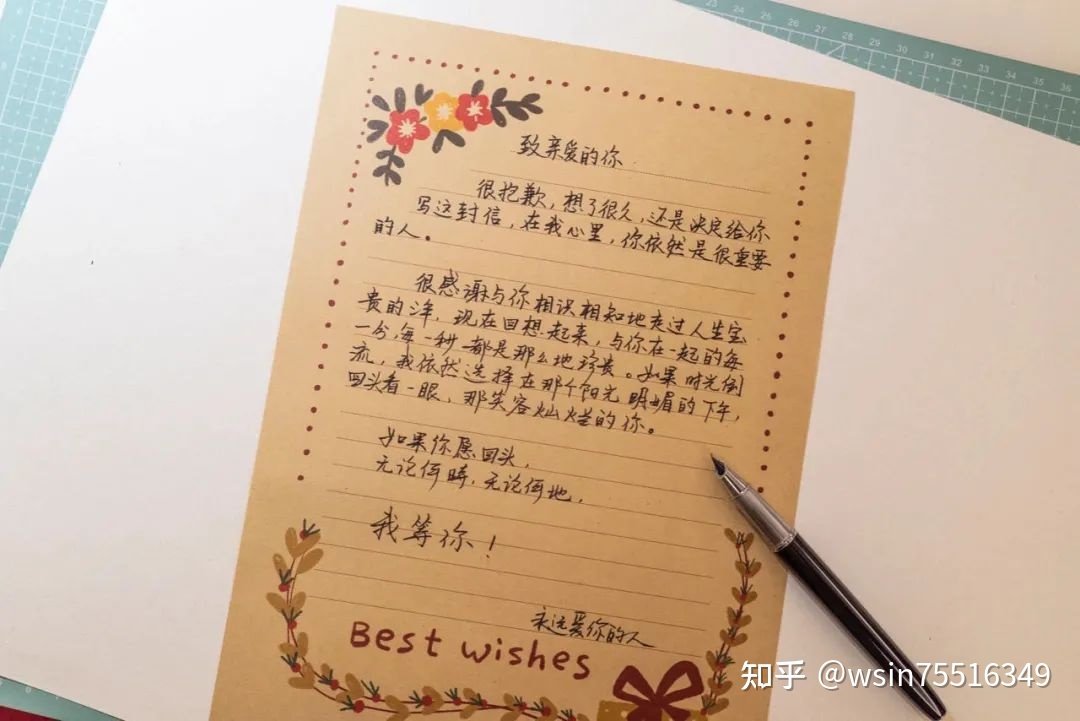 致亲爱的你
很抱歉，想了很久，还是决定给你
写这封信，在我心里，你依然是很重要
的人。
很感谢与你相识相知地走过人生宝
贵的年，现在回想起来，与你在一起的每
一分，每一秒都是那么地珍贵。如果时光倒
流，我依然选择在那个阳光明媚的下午，
回头看一眼，那笑容灿烂的你。
如果你愿回头，
无论何時，无论何地，
我等你！
永远爱你的人
Best wishes
知乎 @wsin75516349
23 24 25 26 27 28 29 30 31 32 33 34 35 36